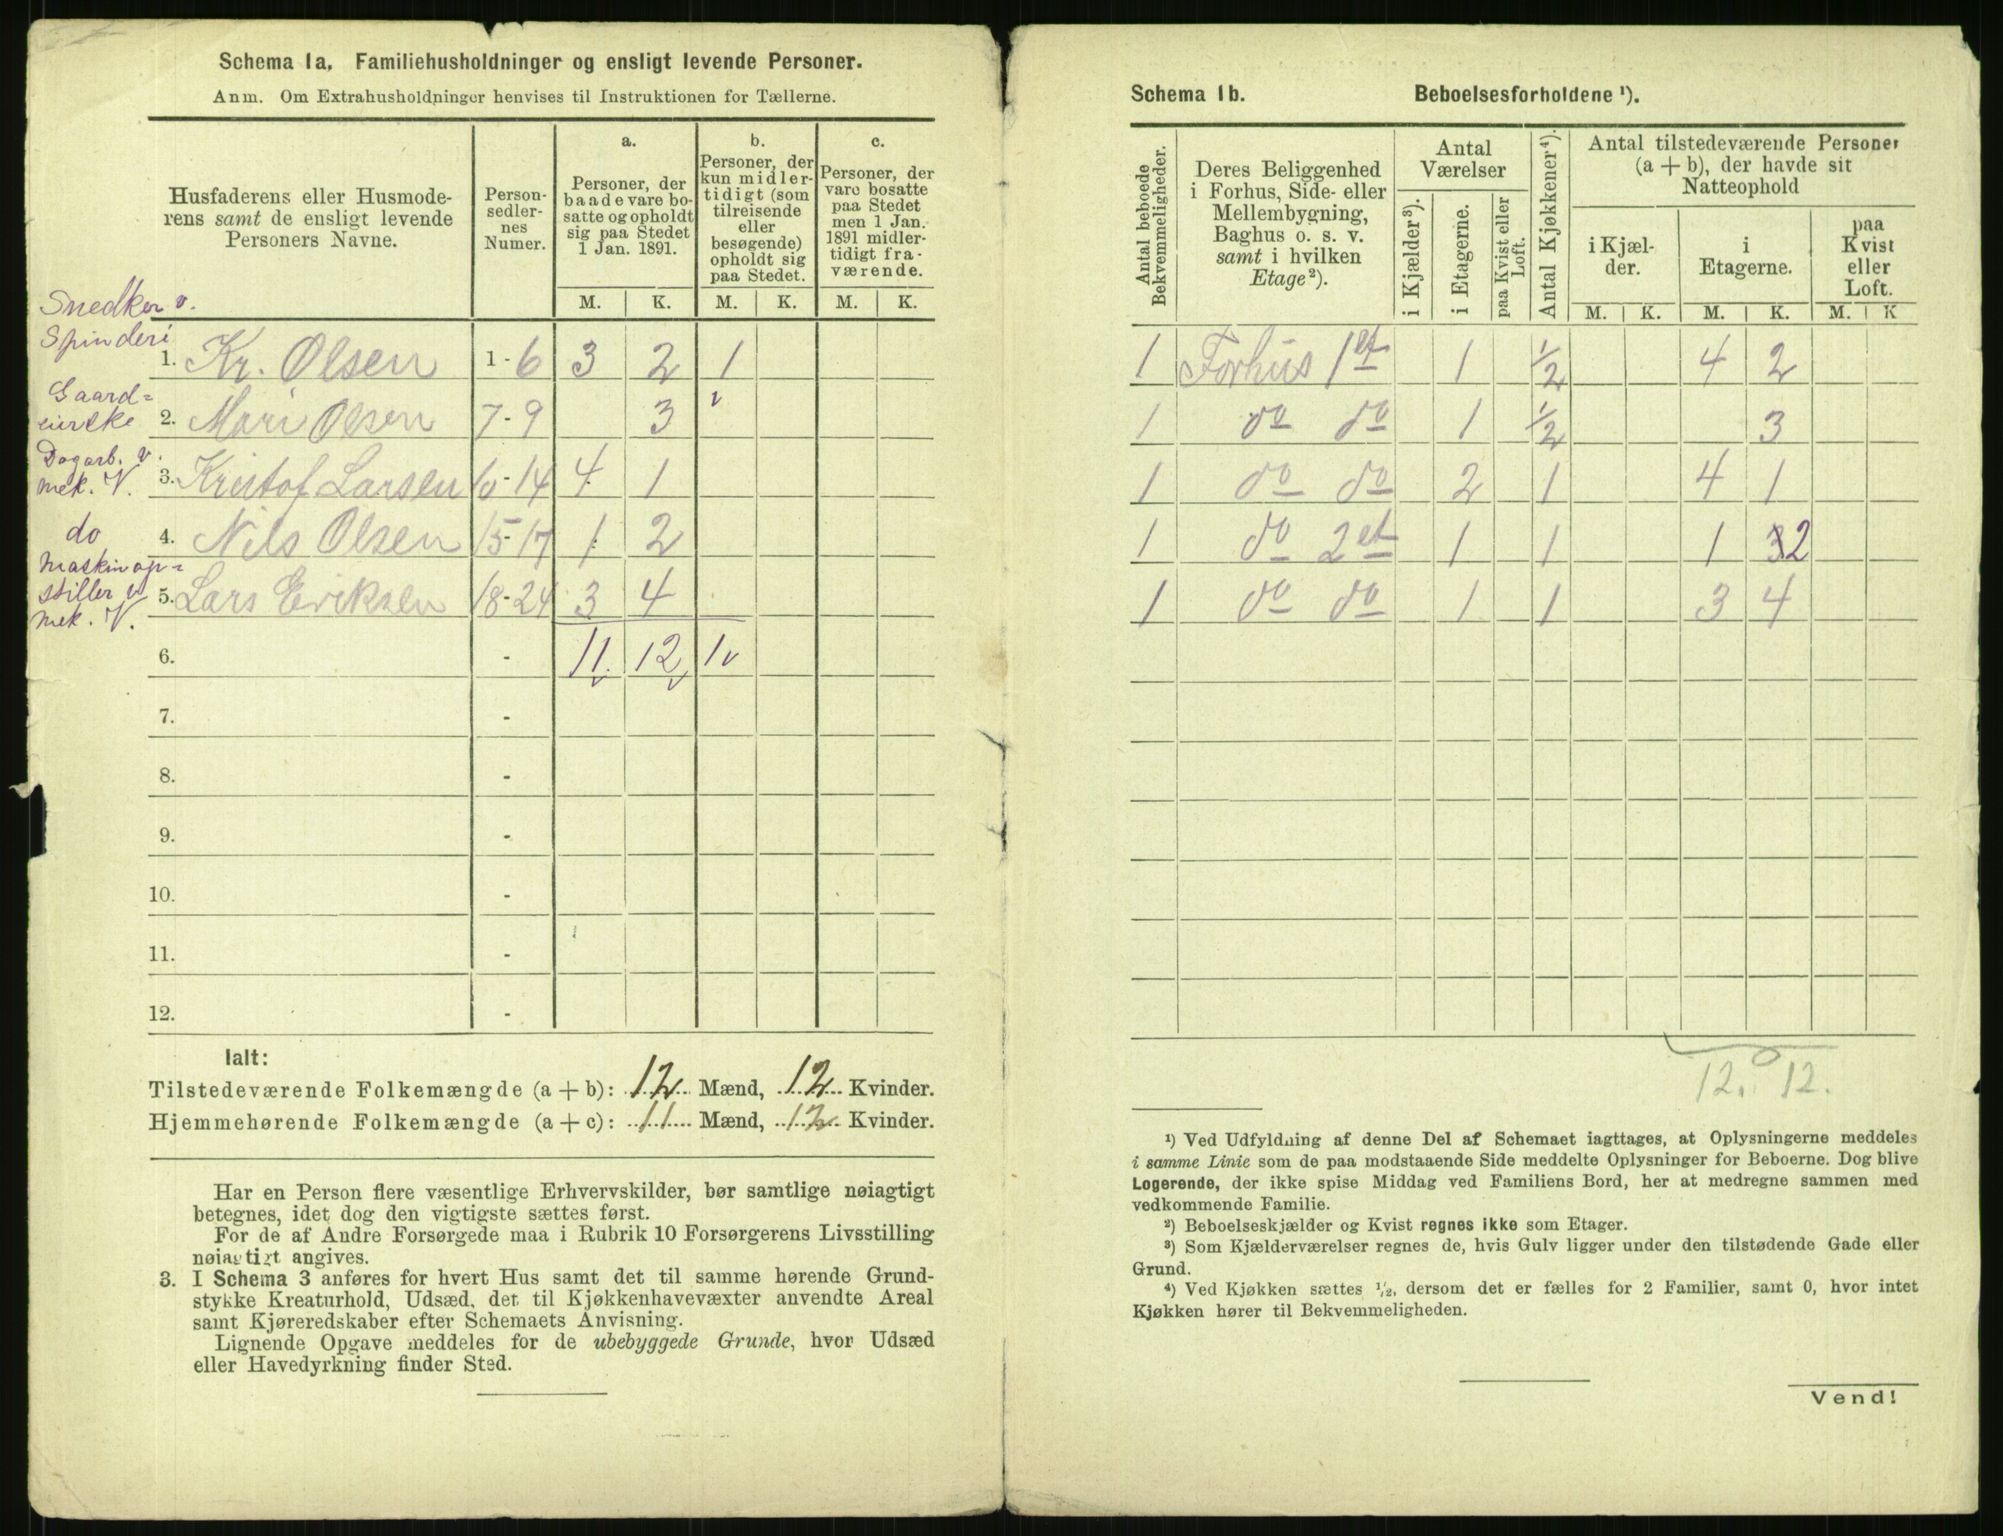 Schema 1a. Familiehusholdninger og ensligt levende Personer.
Anm. Om Extrahusholdninger henvises til Instruktionen for Tællerne.
Husfaderens eller Husmoderens samt de ensligt levende Personers Navne.
Personsedlernes Numer.
a.
Personer, der baade vare bosatte og opholdt sig paa Stedet 1 Jan. 1891.
b.
Personer, der kun midlertidigt (som tilreisende eller besøgende) opholdt sig paa Stedet.
c.
Personer, der vare bosatte paa Stedet men 1 Jan. 1891 midlertidigt fraværende.
M. K. M. K. M. K.
Snedker v.
Spinderi
1. Kr. Olsen 1-6 3 2 1
Gaard-
2. Mari Olsen 7-9 3 v
Dagarb. v.
mek. V.
3. Kristof Larsen 10-14 4 1
do
4. Nils Olsen 15-17 1 2
Maskinop-
stiller v
mek. V.
5. Lars Eriksen 18-24 3 4
6. - 11 12 1 v
7. -
8. -
9. -
10. -
11. -
12. -
Ialt:
Tilstedeværende Folkemængde (a + b): 12 Mænd, 12 Kvinder.
Hjemmehørende Folkemængde (a + c): 11 Mænd, 12 Kvinder.
Har en Person flere væsentlige Erhvervskilder, bør samtlige nøiagtigt
betegnes, idet dog den vigtigste sættes først.
For de af Andre Forsørgede maa i Rubrik 10 Forsørgerens Livsstilling
nøiagtigt angives.
3. I Schema 3 anføres for hvert Hus samt det til samme hørende Grund-
stykke Kreaturhold, Udsæd, det til Kjøkkenhavevæxter anvendte Areal
samt Kjøreredskaber efter Schemaets Anvisning.
Lignende Opgave meddeles for de ubebyggede Grunde, hvor Udsæd
eller Havedyrkning finder Sted.
Schema 1b. Beboelsesforholdene ¹).
Antal beboede Bekvemmeligheder.
Deres Beliggenhed i Forhus, Side- eller Mellembygning, Baghus o. s. v. samt i hvilken Etage ²).
Antal Værelser
i Kjælder ³).
i Etagerne.
paa Kvist eller Loft.
Antal Kjøkkener ⁴).
Antal tilstedeværende Personer (a + b), der havde sit Natteophold
i Kjælder.
i Etagerne.
paa Kvist eller Loft.
M. K. M. K. M. K
1 Forhus 1et 1 1/2 4 2
1 do do 1 1/2 3
1 do do 2 1 4 1
1 do 2et 1 1 1 32
1 do do 1 1 3 4
12. 12.
¹) Ved Udfyldning af denne Del af Schemaet iagttages, at Oplysningerne meddeles
i samme Linie som de paa modstaaende Side meddelte Oplysninger for Beboerne. Dog blive
Logerende, der ikke spise Middag ved Familiens Bord, her at medregne sammen med
vedkommende Familie.
²) Beboelseskjælder og Kvist regnes ikke som Etager.
³) Som Kjælderværelser regnes de, hvis Gulv ligger under den tilstødende Gade eller
Grund.
⁴) Ved Kjøkken sættes ¹/₂, dersom det er fælles for 2 Familier, samt 0, hvor intet
Kjøkken hører til Bekvemmeligheden.
Vend!